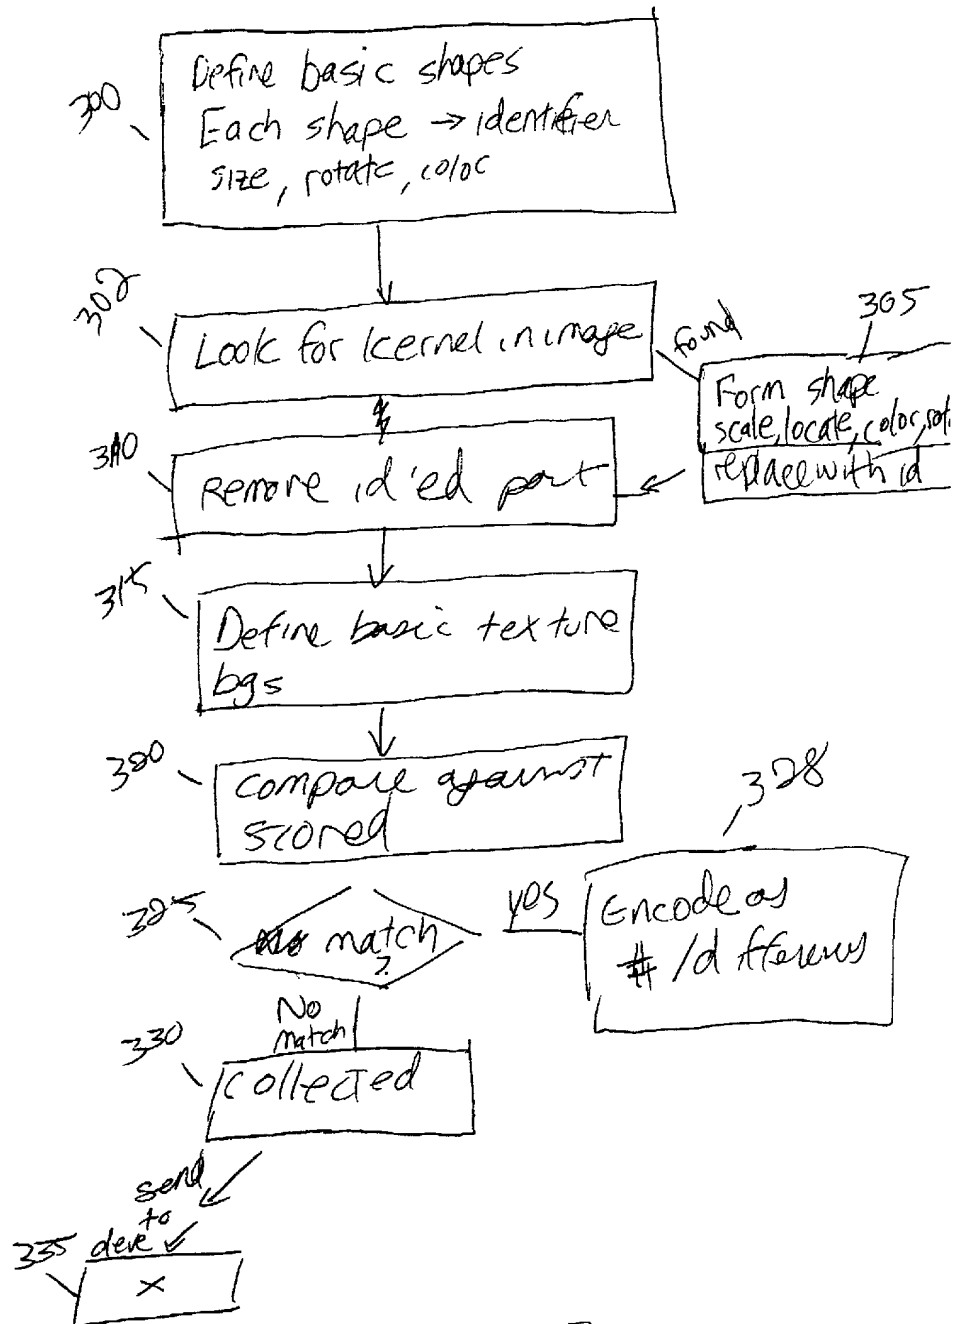 300
Define basic shapes
Each shape → identifier
size, rotate, color
302
Look for kernel in image
found
305
Form shape
scale, locate, color, rot.
replace with id
310
Remove id'ed part
315
Define basic texture
bgs
320
compare against
stored
325
match
?
yes
328
Encode as
# / differences
No
match
330
collected
send
to
335
x